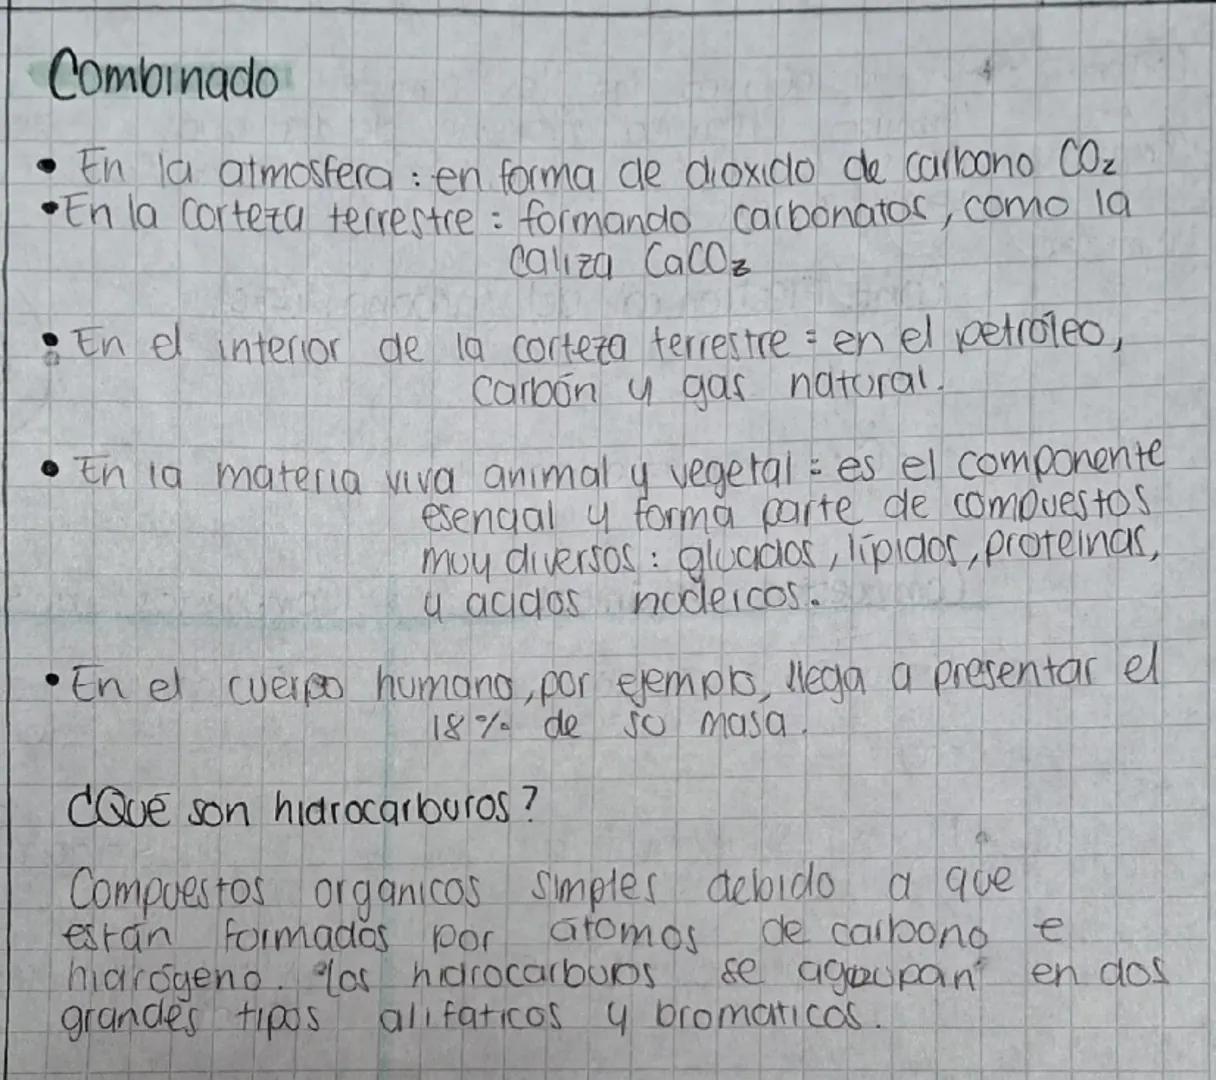 Combinado
• En la atmosfera : en forma de dioxido de carbono CO₂
• En la corteza terrestre : formando carbonatos, como la
caliza CaCO₃
• En el interior de la corteza terrestre : en el petróleo,
carbón y gas natural.
• En la materia viva animal y vegetal : es el componente
esencial y forma parte de compuestos
muy diversos : glucidos, lípidos, proteinas,
y acidos nucleicos.
• En el cuerpo humano, por ejemplo, llega a presentar el
18% de su masa.
¿Qué son hidrocarburos?
Compuestos organicos simples debido a que
están formados por átomos de carbono e
hidrógeno. los hidrocarburos se agrupan en dos
grandes tipos alifaticos y bromaticos.